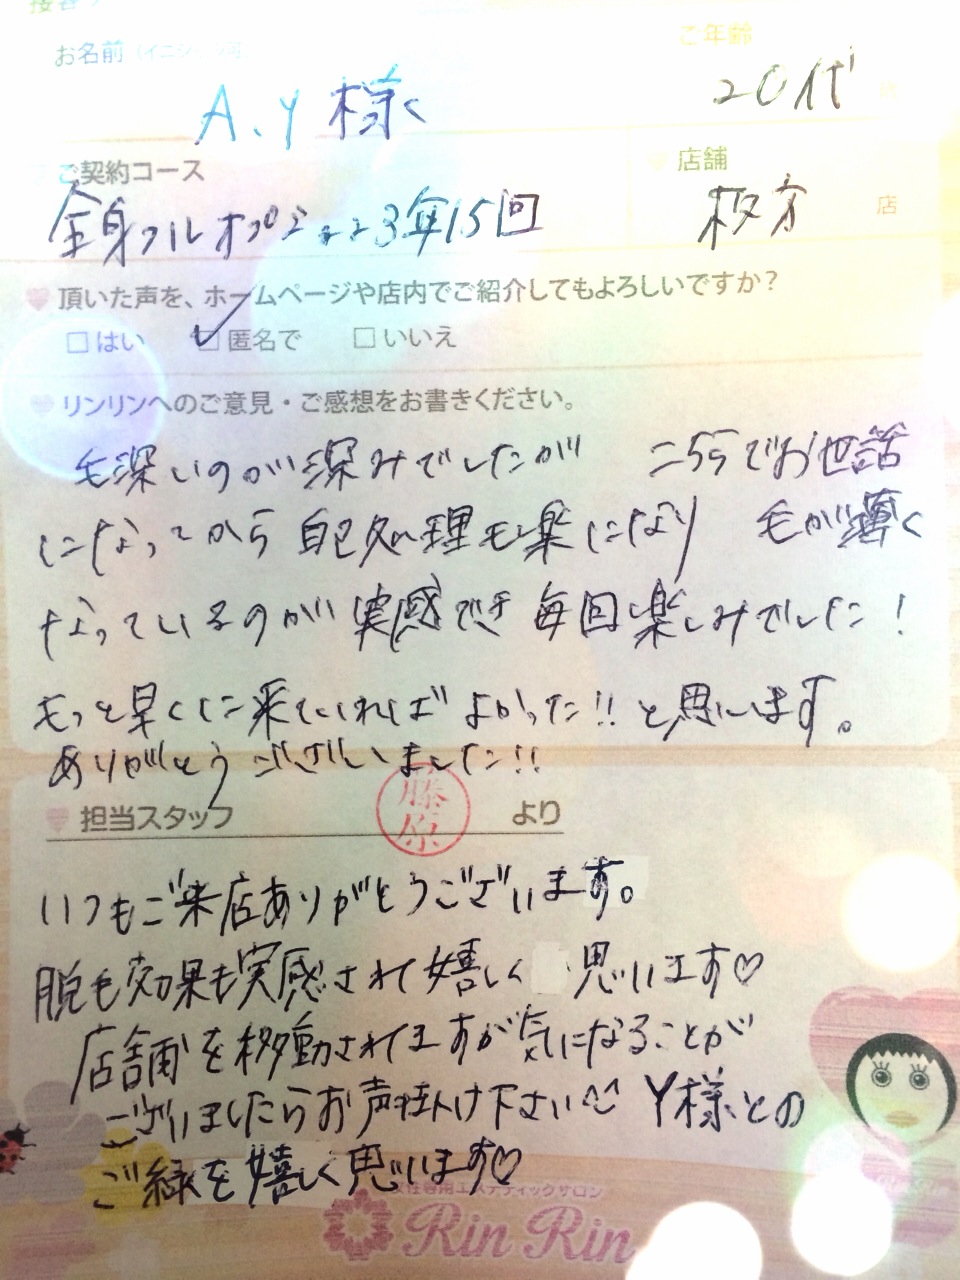 お名前 (イニシャル可)
ご年齢
A、Y 様
20代
ご契約コース
店舗
全身フルオプション3年15回
枚方 店
頂いた声を、ホームページや店内でご紹介してもよろしいですか?
□はい □匿名で □いいえ
リンリンへのご意見・ご感想をお書きください。
毛深いのが深みでしたが こちらでお世話
になってから 自己処理も楽になり 毛が薄く
なっているのが 実感でき 毎回楽しみでした!
もっと早くに来ていればよかった!! と思います。
ありがとうございました!!
担当スタッフ 藤原 より
いつもご来店ありがとうございます。
脱毛効果も実感されて嬉しく 思います♡
店舗を移動されてますが気になることが
ございましたらお声掛け下さい^^ Y様との
ご縁を嬉しく思います♡
女性専用エステティックサロン
Rin Rin